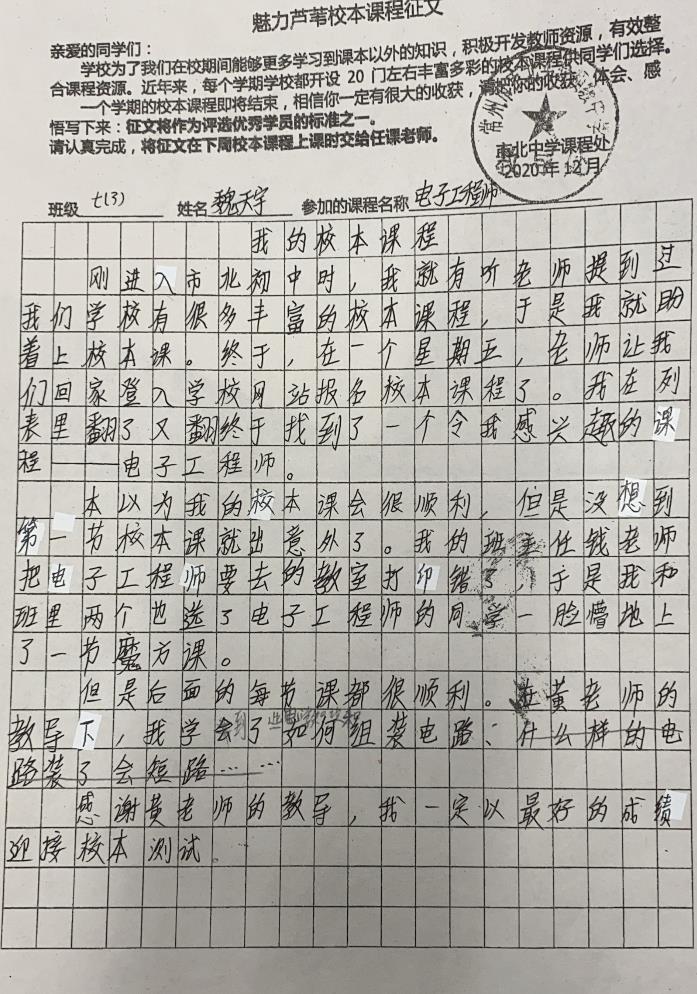 魅力芦苇校本课程征文
亲爱的同学们：
学校为了我们在校期间能够更多学习到课本以外的知识，积极开发教师资源，有效整
合课程资源。近年来，每个学期学校都开设 20 门左右丰富多彩的校本课程供同学们选择。
一个学期的校本课程即将结束，相信你一定有很大的收获，请把你的收获、体会、感
悟写下来：征文将作为评选优秀学员的标准之一。
请认真完成，将征文在下周校本课程上课时交给任课老师。
市北中学课程处
2020 年 12 月
班级 七(3) 姓名 魏天宇 参加的课程名称 电子工程师
我的校本课程
刚进入市北初中时，我就有听老师提到过
我们学校有很多丰富的校本课程，于是我就盼
着上校本课。终于，在一个星期五，老师让我
们回家登入学校网站报名校本课程了。我在列
表里翻了又翻终于找到了一个令我感兴趣的课
程——电子工程师。
本以为我的校本课会很顺利，但是没想到
第一节校本课就出意外了。我的班主任钱老师
把电子工程师要去的教室打印错了，于是我和
班里两个也选了电子工程师的同学一脸懵地上
了一节魔方课。
但是后面的每节课都很顺利。在黄老师的
教导下，我学会了如何组装电路：什么样的电
路装了会短路……
感谢黄老师的教导，我一定以最好的成绩
迎接校本测试。